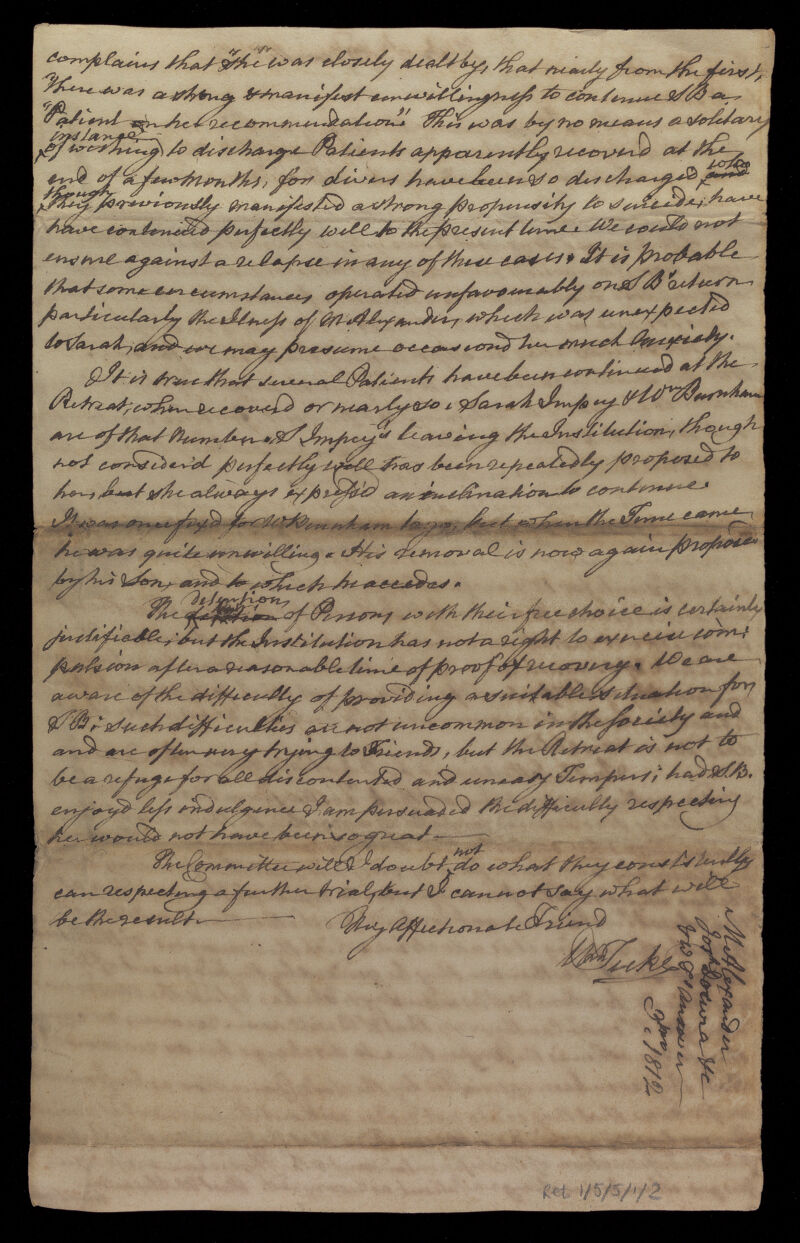 complains that "She was closely dealt by, that nearly from the first,
"there was a strong & manifest unwillingness to continue S B a
"Patient on her recommendation". This was by no means a solitary
instance
of wishing to discharge Patients apparently recover'd at the
end of a few Months, for divers have been so discharged who and
though
they previously manifested a strong propensity to suicide, have
have continued perfectly well to the present time. We could not
ensure against a relapse in any of these cases. It is probable
that some circumstances operated unfavourably on S B's return
particularly the Illness of M Alexander, which was unexpected
to Sarah, and we may presume occasion'd her much Anxiety.
It is true that several Patients have been continued at the
Retreat, when recover'd or nearly so. Sarah Impey & Wm Burnham
are of that number. S Impey's leaving the Institution, though
not consider'd perfectly well has been repeatedly proposed to
her, but she always express'd an inclination to continue.
It was once fix'd for W Burnham to go, but when the Time came
he was quite unwilling. His removal is now again proposed
by his Son, and to which he accedes.
detention
The of Persons with their free choice is certainly
justifiable; but the Institution has not a right to exercise com:
pulsion after a reasonable time of proof of recovery. We are
aware of the difficulty of providing a suitable situation for
S B; such difficulties are not uncommon in the Society and
and are often very trying to Friends, but the Retreat is not to
be a refuge for all discontented and uneasy Tempers; had S.B.
enjoy'd less indulgence I am persuaded the difficulty respecting
her would not have been so great.
not
The Committee will I doubt do what they consistently
can respecting a further trial, but I cannot say what will
be the result.
thy Affectionate Friend
Wm Tuke
M Alexander
&c
& Answer
1812
Ret 1/5/5/1/2